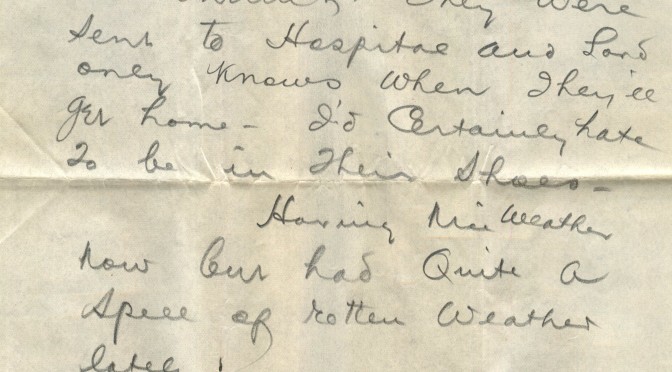 They were
sent to Hospital and Lord
only knows when They'll
get home - I'd Certainly hate
To be in Their Shoes -
Having Nice Weather
now but had Quite a
Spell of rotten Weather
lately